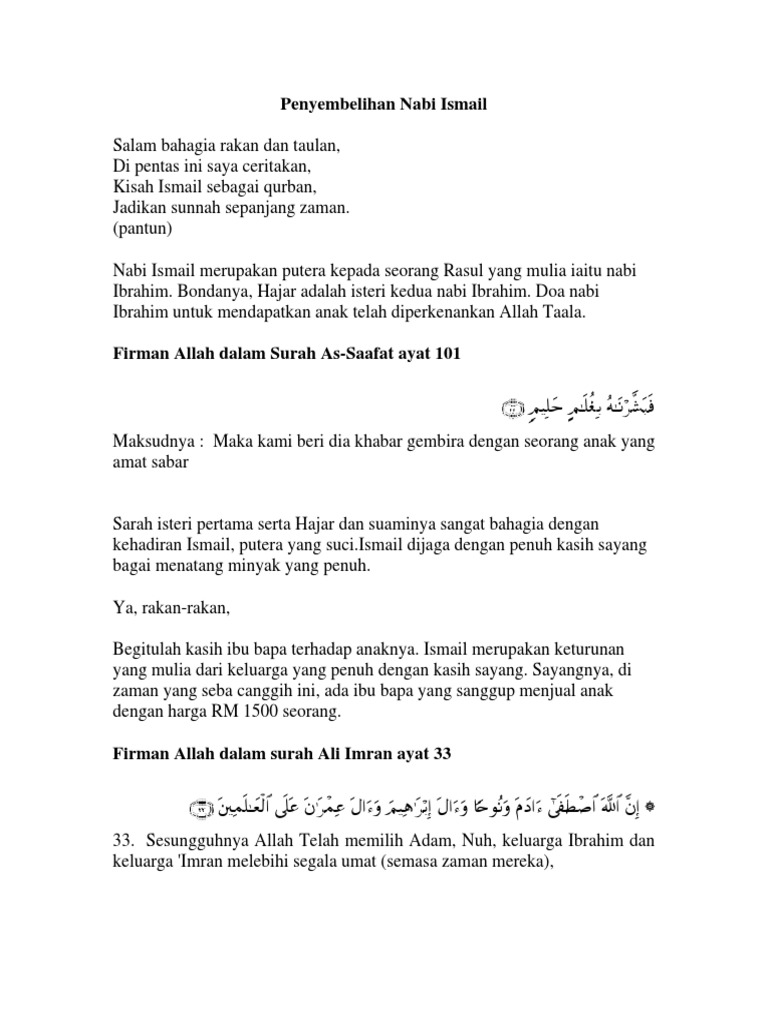 Penyembelihan Nabi Ismail
Salam bahagia rakan dan taulan,
Di pentas ini saya ceritakan,
Kisah Ismail sebagai qurban,
Jadikan sunnah sepanjang zaman.
(pantun)
Nabi Ismail merupakan putera kepada seorang Rasul yang mulia iaitu nabi
Ibrahim. Bondanya, Hajar adalah isteri kedua nabi Ibrahim. Doa nabi
Ibrahim untuk mendapatkan anak telah diperkenankan Allah Taala.
Firman Allah dalam Surah As-Saafat ayat 101
فَبَشَّرْنَـٰهُ بِغُلَـٰمٍ حَلِيمٍ
Maksudnya :  Maka kami beri dia khabar gembira dengan seorang anak yang
amat sabar
Sarah isteri pertama serta Hajar dan suaminya sangat bahagia dengan
kehadiran Ismail, putera yang suci.Ismail dijaga dengan penuh kasih sayang
bagai menatang minyak yang penuh.
Ya, rakan-rakan,
Begitulah kasih ibu bapa terhadap anaknya. Ismail merupakan keturunan
yang mulia dari keluarga yang penuh dengan kasih sayang. Sayangnya, di
zaman yang seba canggih ini, ada ibu bapa yang sanggup menjual anak
dengan harga RM 1500 seorang.
Firman Allah dalam surah Ali Imran ayat 33
۞ إِنَّ ٱللَّهَ ٱصْطَفَىٰٓ ءَادَمَ وَنُوحًا وَءَالَ إِبْرَٰهِيمَ وَءَالَ عِمْرَٰنَ عَلَى ٱلْعَـٰلَمِينَ ﴿٣٣﴾
33.  Sesungguhnya Allah Telah memilih Adam, Nuh, keluarga Ibrahim dan
keluarga 'Imran melebihi segala umat (semasa zaman mereka),